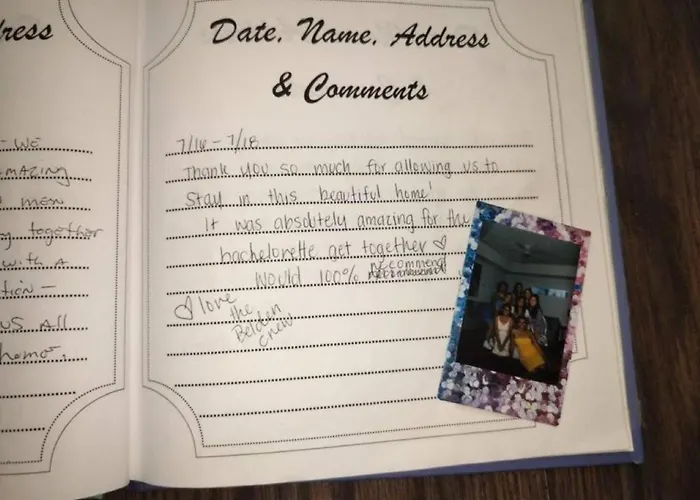 ress
- WE
AMAZING
men
together
with a
tion -
us All
home.
Date, Name, Address
& Comments
7/16 - 7/18
Thank you so much for allowing us to
stay in this beautiful home!
It was absolutely amazing for the
bachelorette get together ♡
Would 100% recommend
♡ love
the
Belden
crew